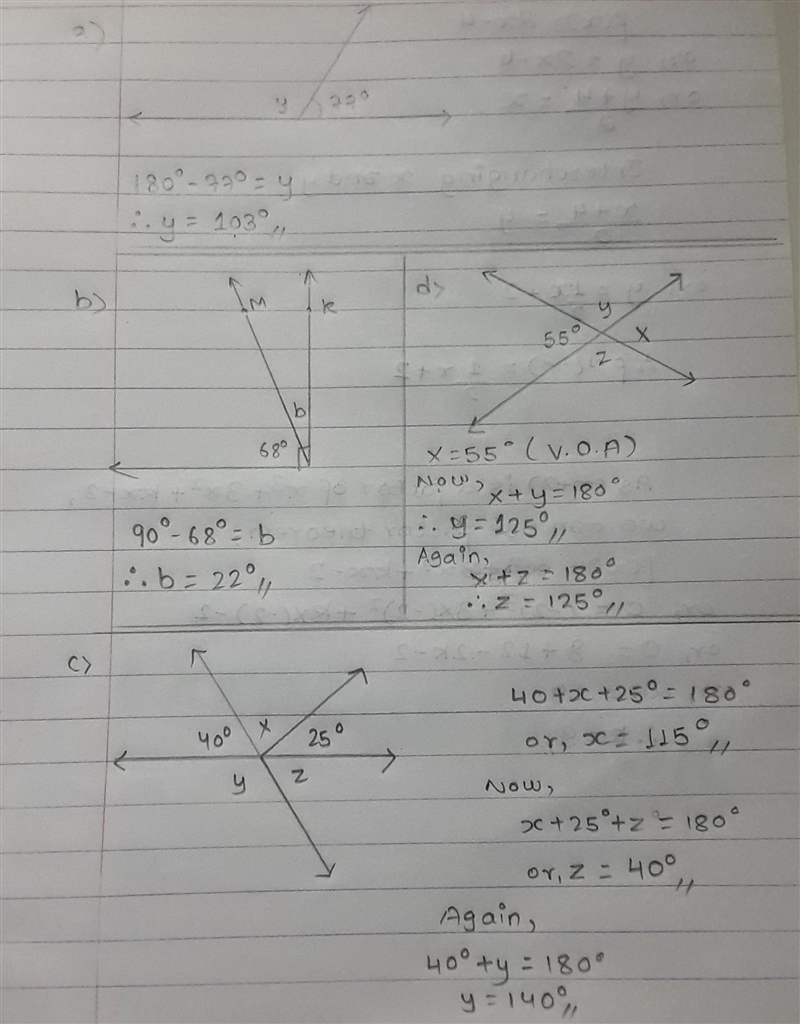 a)
y 77°
180° - 77° = y
∴ y = 103°,,
b)
M K
b
68°
90° - 68° = b
∴ b = 22°,,
d)
y
55° x
z
x = 55° (V.O.A)
Now,
x + y = 180°
∴ y = 125°,,
Again,
x + z = 180°
∴ z = 125°,,
c)
40° x 25°
y z
40 + x + 25° = 180°
or, x = 115°,,
Now,
x + 25° + z = 180°
or, z = 40°,,
Again,
40° + y = 180°
y = 140°,,